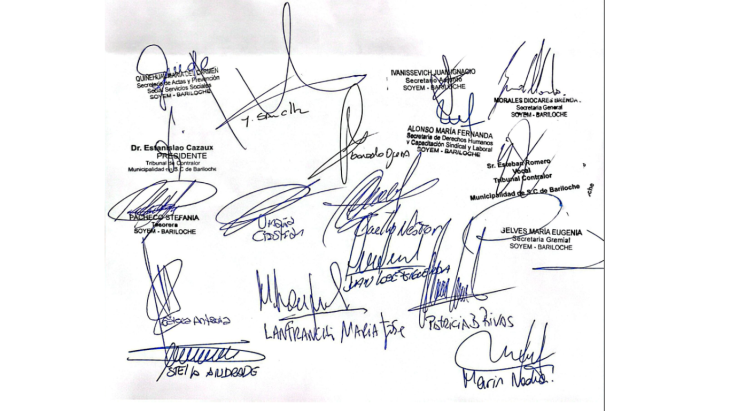 QUINEHUAL MARIA DEL CARMEN
Secretaria de Actas y Prevención
Social Servicios Sociales
SOYEM - BARILOCHE
IVANISSEVICH JUAN IGNACIO
Secretario Adjunto
SOYEM - BARILOCHE
MORALES DIOCARES BRENDA
Secretaria General
SOYEM - BARILOCHE
ALONSO MARÍA FERNANDA
Secretaria de Derechos Humanos
y Capacitación Sindical y Laboral
SOYEM - BARILOCHE
Dr. Estanislao Cazaux
PRESIDENTE
Tribunal de Contralor
Municipalidad de S.C de Bariloche
Sr. Esteban Romero
Vocal
Tribunal Contralor
Municipalidad de S.C de Bariloche
PACHECO STEFANIA
Tesorera
SOYEM - BARILOCHE
JELVES MARÍA EUGENIA
Secretaria Gremial
SOYEM - BARILOCHE
LANFRANCHI MARIA JOSE
PATRICIA RIVAS
STELLA ANDRADE
Marin Nadia